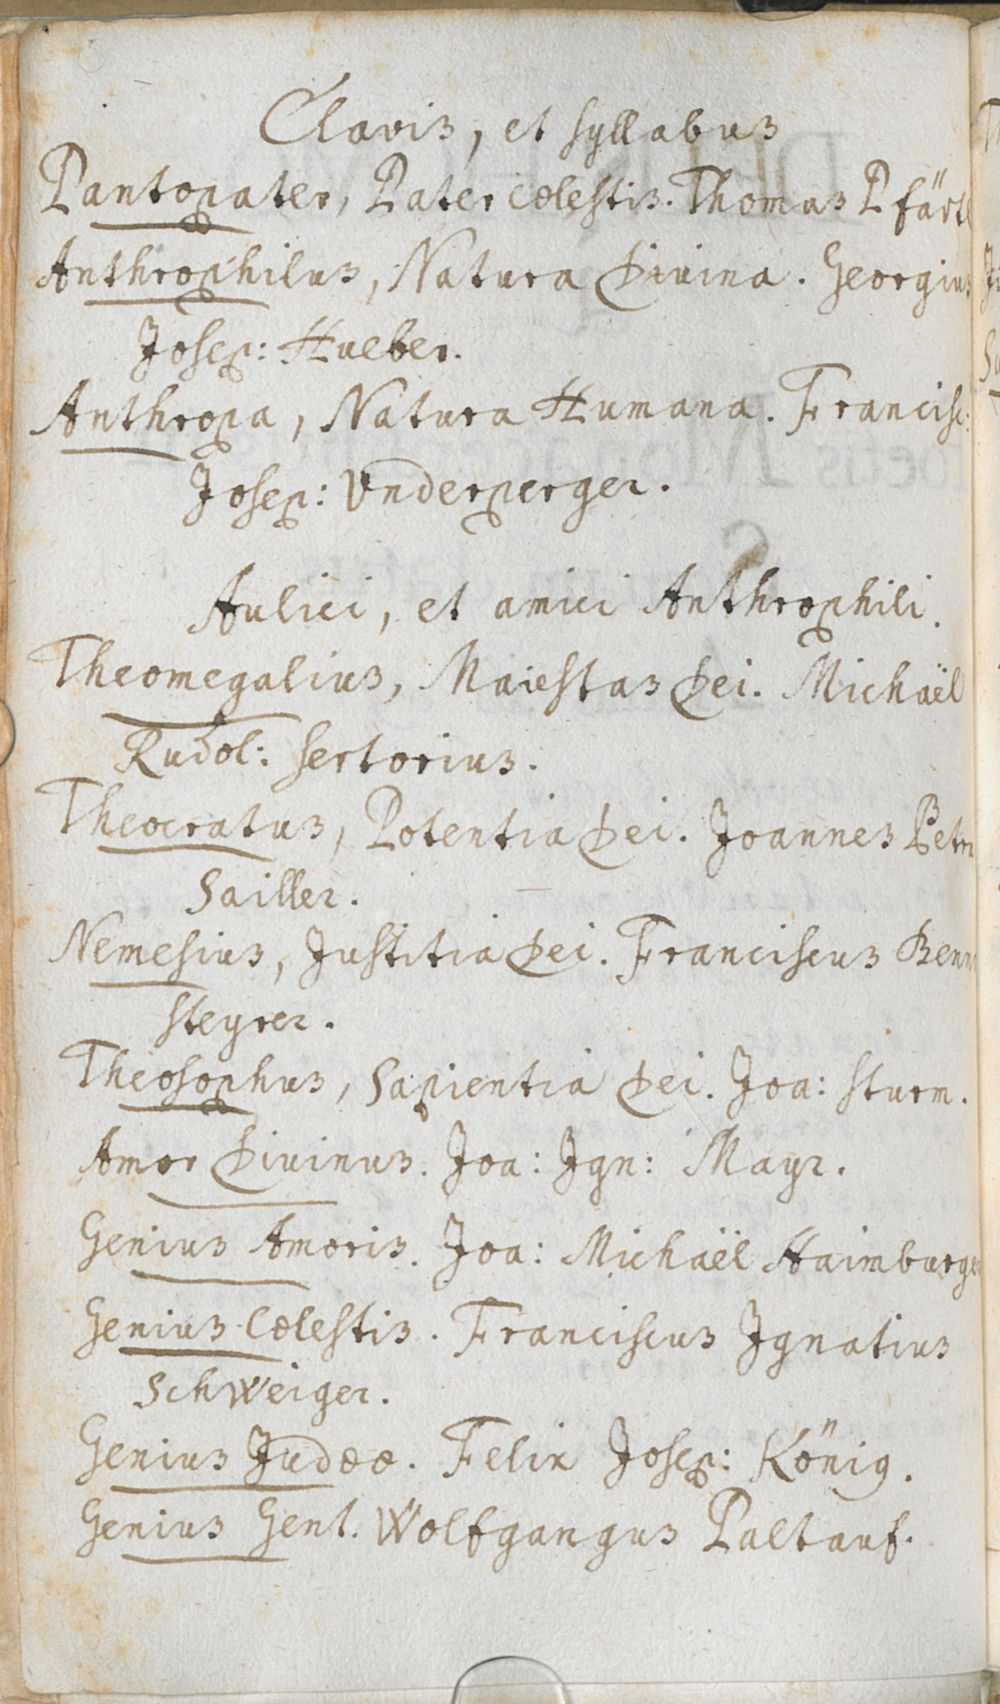 Clavis, et Syllabus
Pantopater, Pater cœlestis. Thomas Pfärtl
Anthrophilus, Natura Diuina. Georgius
Josep: Hueber.
Anthropa, Natura Humana. Francisc:
Josep: Underperger.
Aulici, et amici Anthrophili.
Theomegalius, Maiestas Dei. Michaël
Rudol: Sertorius.
Theocratus, Potentia Dei. Joannes Petru
Sailler.
Nemesius, Justitia Dei. Franciscus Benn
Steyrer.
Theosophus, Sapientia Dei. Joa: Sturm.
Amor Diuinus. Joa: Ign: Mayr.
Genius Amoris. Joa: Michaël Haimburge
Genius Cœlestis. Franciscus Ignatius
Schweiger.
Genius Judææ. Felix Josep: König.
Genius Gent. Wolfgangus Paltauf.